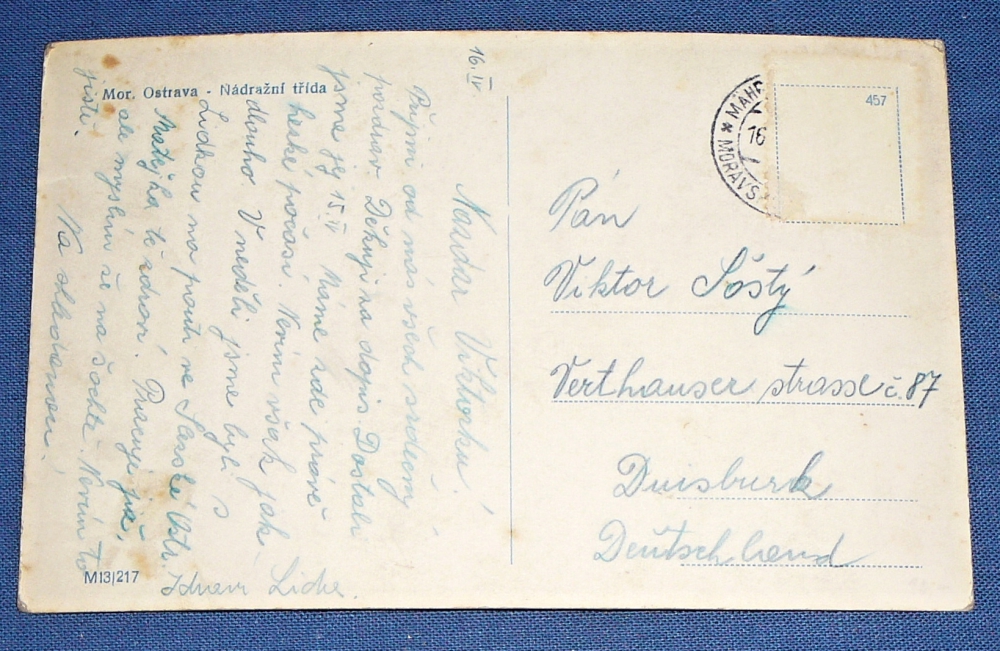 Mor. Ostrava - Nádražní třída
16. IV
Nazdar Viktorku!
Přijmi od nás všech srdečný
pozdrav. Děkuji na dopis. Dostali
jsme jej 15. IV Máme zde právě
hezké počasí. Nevím však jak
dlouho. V neděli jsme byli s
Lidkou na pouti ve
je zdráv. Pracuje již,
ale myslím že na šachtě. Nevím to
jistě.
Na shledanou!
Lida.
M13/217
457
* MÄHR
16
* MORAVS
Pán
Viktor Šóstý
Verthauser strasse č. 87
Duisburk
Deutschland